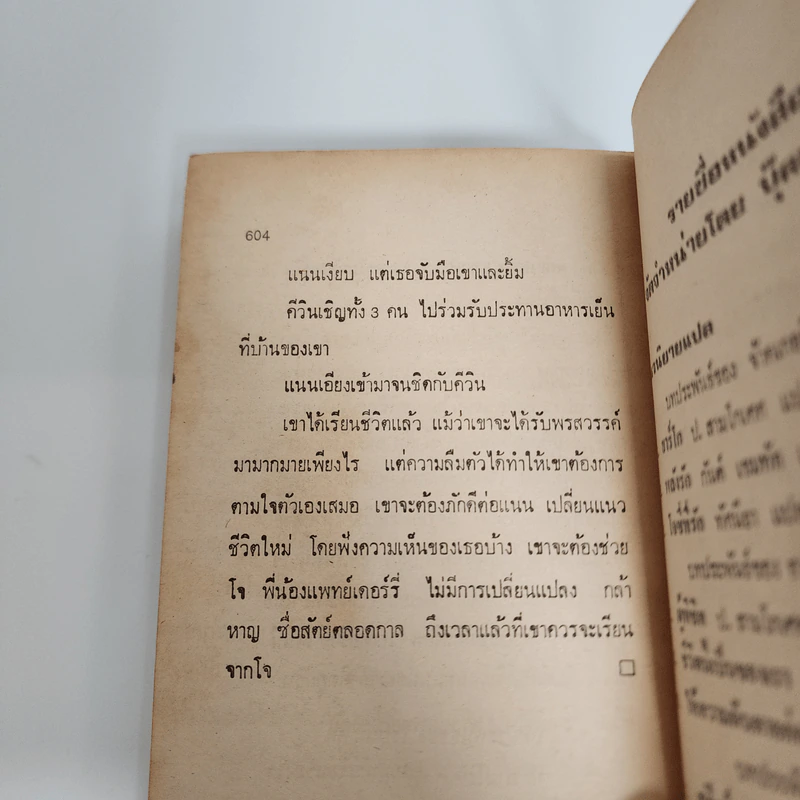 604
แนนเงียบ แต่เธอจับมือเขาและยิ้ม
คีวินเชิญทั้ง 3 คน ไปร่วมรับประทานอาหารเย็น
ที่บ้านของเขา
แนนเอียงเข้ามาจนชิดกับคีวิน
เขาได้เรียนชีวิตแล้ว แม้ว่าเขาจะได้รับพรสวรรค์
มามากมายเพียงไร แต่ความลืมตัวได้ทำให้เขาต้องการ
ตามใจตัวเองเสมอ เขาจะต้องภักดีต่อแนน เปลี่ยนแนว
ชีวิตใหม่ โดยฟังความเห็นของเธอบ้าง เขาจะต้องช่วย
โจ พี่น้องแพทย์เคอร์รี่ ไม่มีการเปลี่ยนแปลง กล้า
หาญ ซื่อสัตย์ตลอดกาล ถึงเวลาแล้วที่เขาควรจะเรียน
จากโจ □
รายชื่อหนังสือ
จัดจำหน่ายโดย
นนิยายแปล
บทประพันธ์ของ
ป. สามโกเศศ
บทประพันธ์ของ
ป. สามโกเศศ